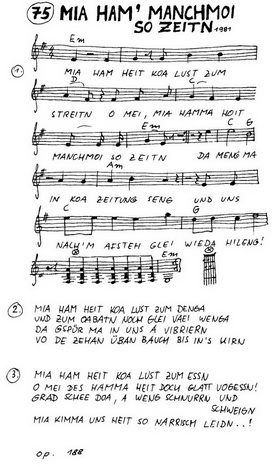 75 MIA HAM' MANCHMOI
SO ZEITN 1981
Em
1. MIA HAM HEIT KOA LUST ZUM
D C
STREITN O MEI, MIA HAMMA HOIT
Em C G
MANCHMOI SO ZEITN DA MENG MA
Am
IN KOA ZEITUNG SENG UND UNS
C G
NACH'M AESTEH GLEI WIEDA HILENG!
Em
2. MIA HAM HEIT KOA LUST ZUM DENGA
UND ZUM OABATN NOCH GLEI VAEI WENGA
DA GSPÜR MA IN UNS A VIBRIERN
VO DE ZEHAN ÜBAN BAUCH BIS IN'S HIRN
3. MIA HAM HEIT KOA LUST ZUM ESSN
O MEI DES HAMMA HEIT DOCH GLATT VOGESSN!
GRAD SCHEE DOA, A WENG SCHNURRN UND
SCHWEIGN
MIA KIMMA UNS HEIT SO NARRISCH LEIDN..!
op. 188